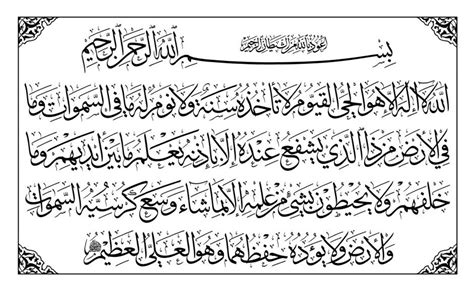 اعوذ بالله من الشيطان الرجيم
بسم الله الرحمن الرحيم
الله لا اله الا هو الحي القيوم لا تاخذه سنة ولا نوم له ما في السموات وما
في الارض من ذا الذي يشفع عنده الا باذنه يعلم ما بين ايديهم وما
خلفهم ولا يحيطون بشيء من علمه الا بما شاء وسع كرسيه السموات
والارض ولا يؤده حفظهما وهو العلي العظيم